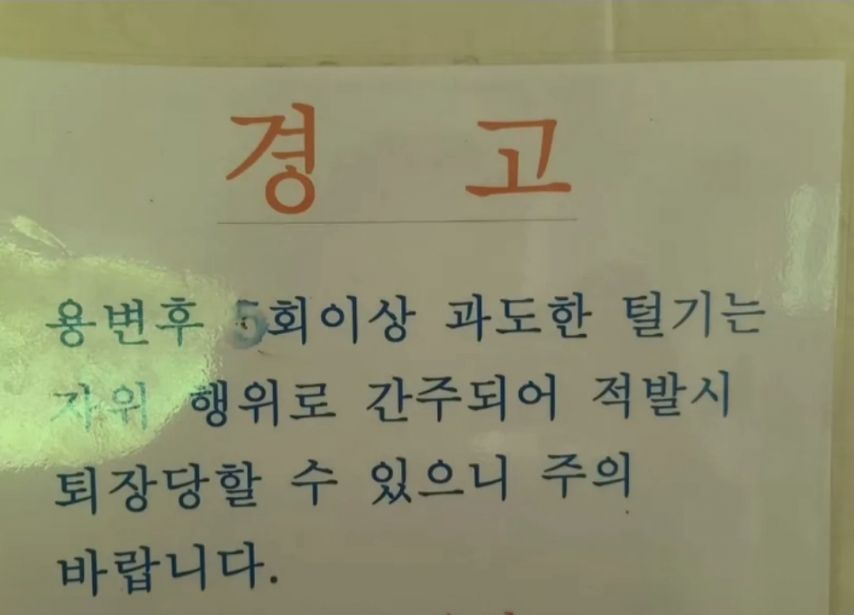 경 고
용변후 5회이상 과도한 털기는
자위 행위로 간주되어 적발시
퇴장당할 수 있으니 주의
바랍니다.